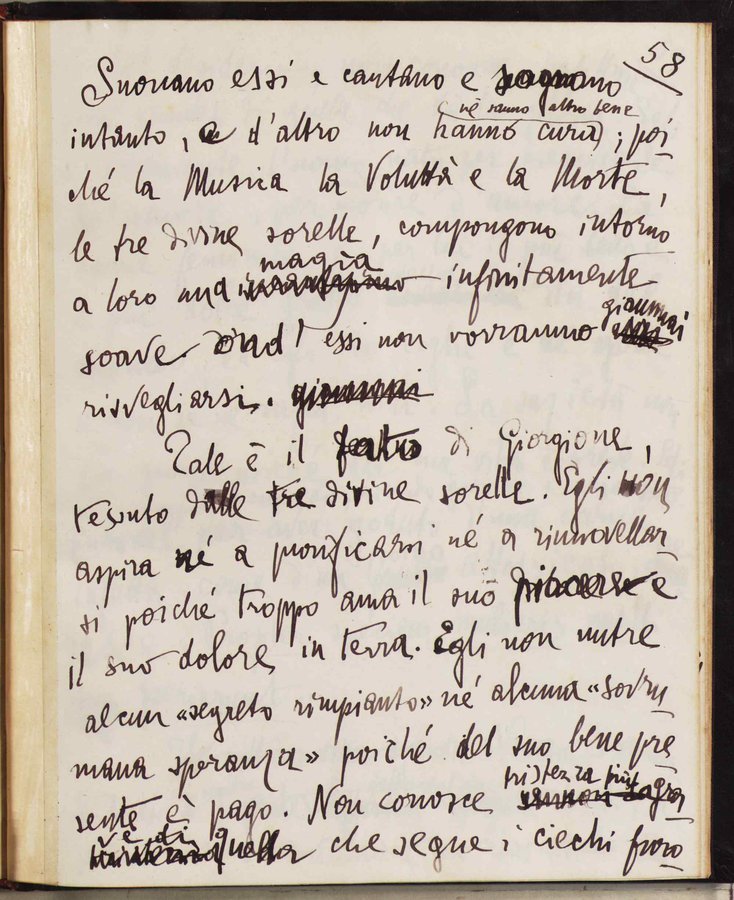 58
Suonano essi e cantano e sognano
né sanno altro bene
intanto, e d'altro non hanno cura; poi
ché la Musica la Voluttà e la Morte,
le tre divine sorelle, compongono intorno
magia
a loro una infinitamente
giammai
soave ond' essi non vorranno
risvegliarsi. giammai
Tale è il fatto di Giorgione,
tessuto dalle tre divine sorelle. Egli non
aspira né a purificarsi né a rinnovellar
si poiché troppo ama il suo piacere e
il suo dolore in terra. Egli non nutre
alcun «segreto rimpianto» né alcuna «sovru
mana speranza» poiché del suo bene pre
tristezza più
sente è pago. Non conosce
v'è di quella che segue i ciechi furo